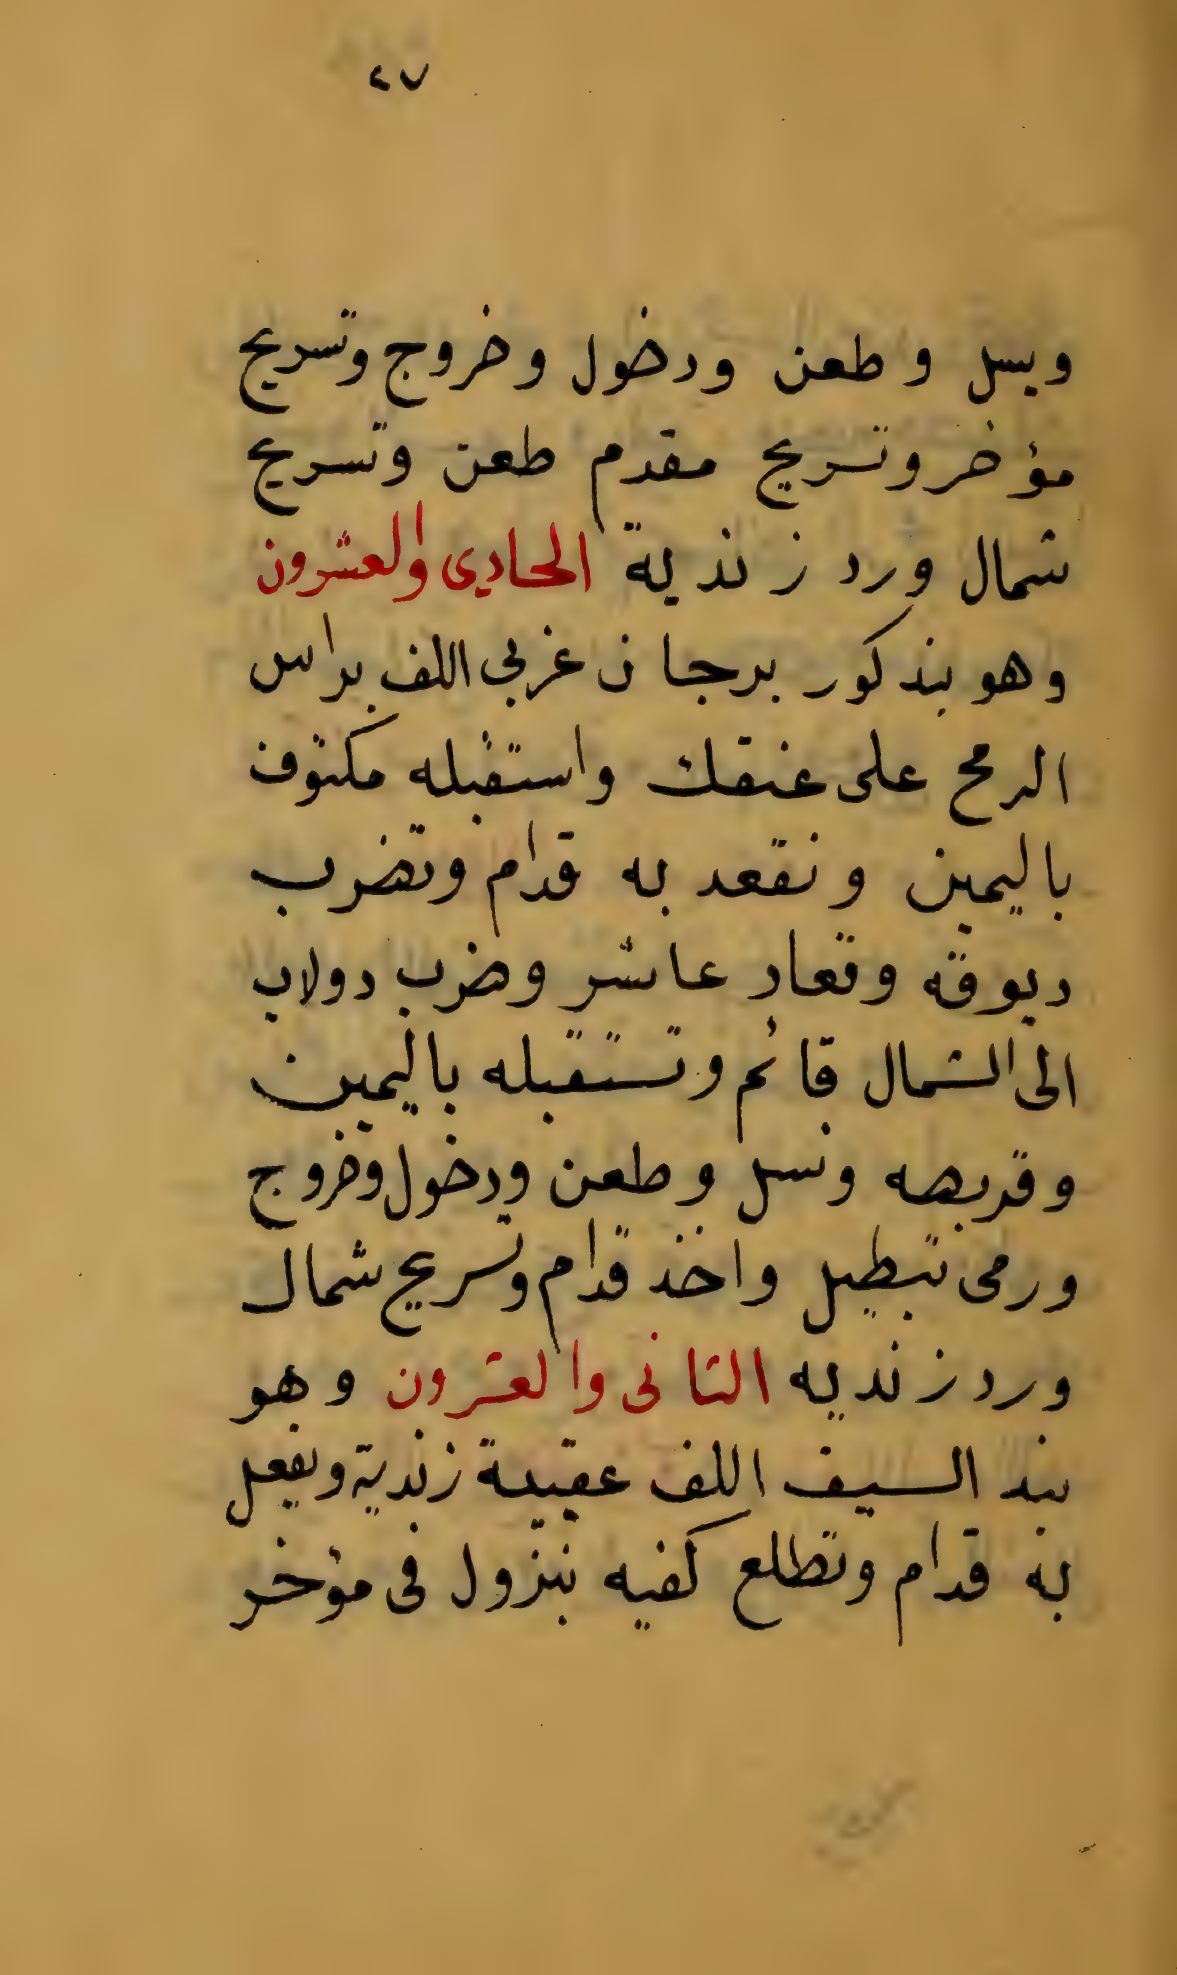 ٤٧
وبسل وطعن ودخول وخروج وتسريح
مؤخر وتسريح مقدم طعن وتسريح
شمال ورد زندية الحادى والعشرون
وهو بند كور برجان غربى اللف براس
الرمح على عنقك واستقبله مكتوف
باليمين ونقعد به قدام وتضرب
ديوقه وقعاد عاشر وضرب دولاب
الى الشمال قائم وتستقبله باليمين
وقربصه ونسل وطعن ودخول وخروج
ورمى تبطيل واخذ قدام وتسريح شمال
ورد زنديه الثانى والعشرون وهو
بند السيف اللف عقيبة زندية ويفعل
به قدام وتطلع كفيه بنزول فى مؤخر